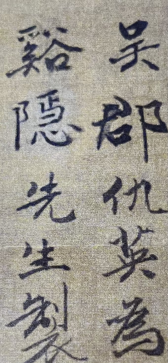 吳郡仇英為
谿隱先生製